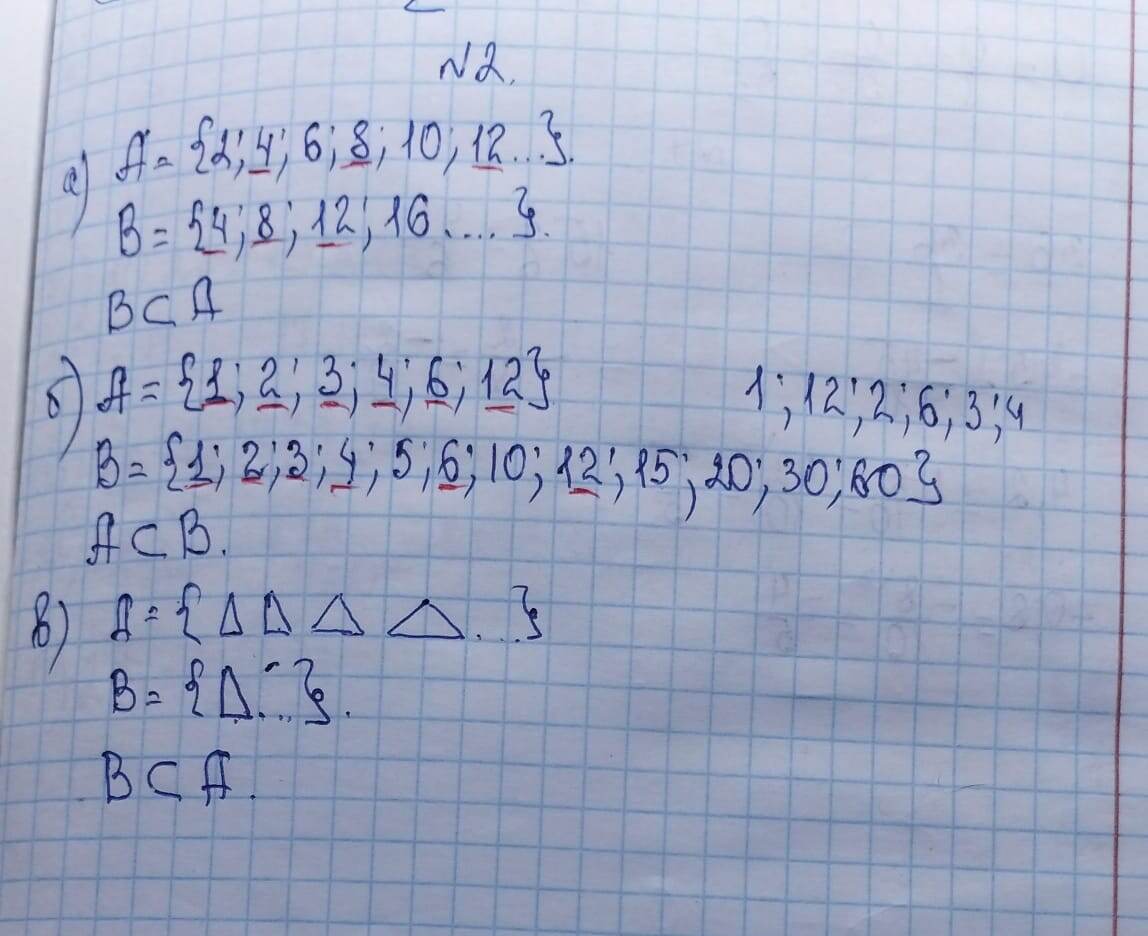 №2.
а) A = {2; 4; 6; 8; 10; 12...}.
B = {4; 8; 12; 16....}.
B⊂A
б) A = {1; 2; 3; 4; 6; 12}
1; 12; 2; 6; 3; 4
B = {1; 2; 3; 4; 5; 6; 10; 12; 15; 20; 30; 60}
A⊂B.
в) A = {△ △ △ △...}
B = {△...}.
B⊂A.